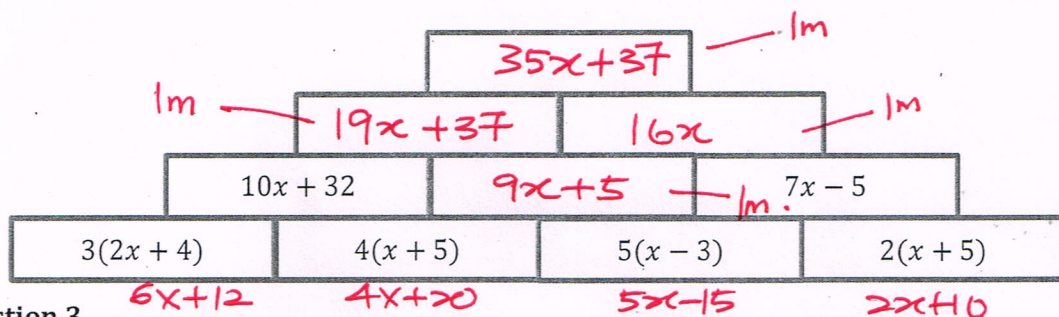 1m
35x+37
1m
19x+37 16x
1m
10x + 32 9x+5 7x − 5
1m.
3(2x + 4) 4(x + 5) 5(x − 3) 2(x + 5)
6x+12 4x+20 5x-15 2x+10